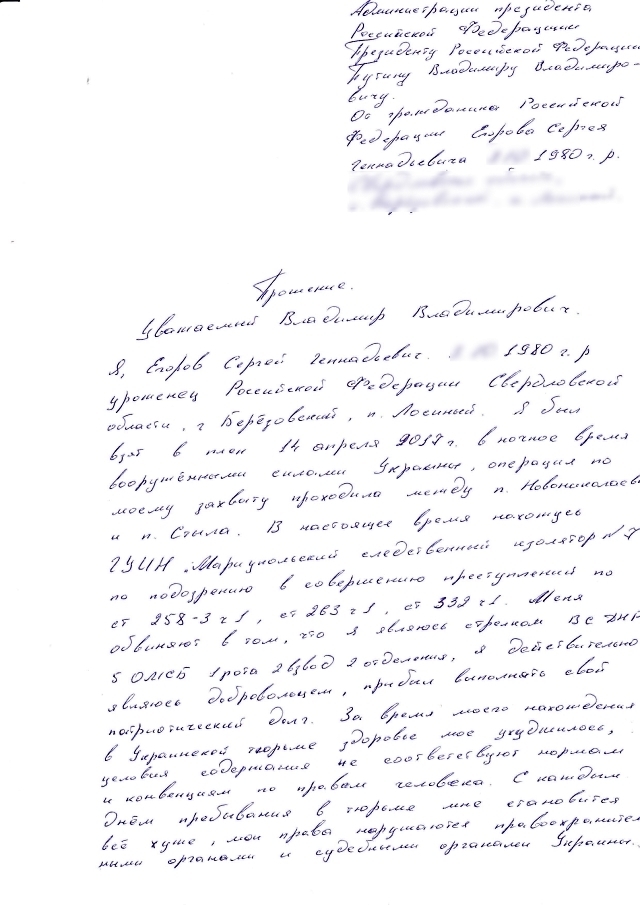 Администрации президента
Российской Федерации
Президенту Российской Федерации
Путину Владимиру Владимиро-
вичу.
От гражданина Российской
Федерации Егорова Сергея
Геннадьевича 1980 г. р.
Прошение.
Уважаемый Владимир Владимирович.
Я, Егоров Сергей Геннадьевич. 1980 г. р
уроженец Российской Федерации Свердловской
области, г Берёзовский, п. Лосиный. Я был
взят в плен 14 апреля 2017 г. в ночное время
вооружёнными силами Украины, операция по
моему захвату проходила между п. Новониколаевк
и п. Стыла. В настоящее время нахожусь
ГУИН "Мариупольский следственный изолятор N 7
по подозрению в совершению преступлений по
ст 258-3 ч1, ст 263 ч1, ст 332 ч1. Меня
обвиняют в том, что я являюсь стрелком ВС ДНР
5 ОМСБ 1 рота 2 взвод 2 отделения, я действительно
являюсь добровольцем, прибыл выполнять свой
патриотический долг. За время моего нахождения
в Украинской тюрьме здоровье мое ухудшилось,
условия содержания не соответствуют нормам
и конвенциям по правам человека. С каждым
днём пребывания в тюрьме мне становится
всё хуже, мои права нарушаются правоохранител
ными органами и судебными органами Украины.